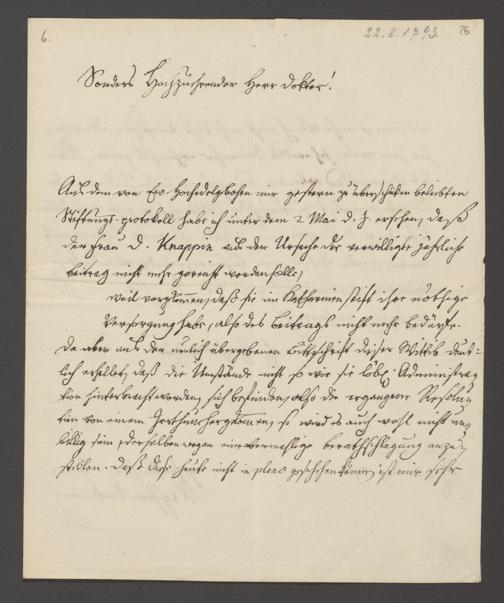 6.
22.8.1793.
26
Sonders Hochzuehrender Herr Doktor!
Aus dem von Ew. Hochedelgebohrn mir gestern zu überschicken beliebten
Stiftungs-protokoll habe ich unter dem 2 Mai d. J. ersehen, daß
der Frau D. Knappin aus der Ursache der verwilligte jährliche
Beitrag nicht mehr gereicht werden solle,
weil vorgekommen, daß sie im Katharinenstift ihre nöthige
Versorgung habe, also des Beitrags nicht mehr bedürfe.
Da aber aus der neulich übergebenen Bittschrift dieser Wittib deut-
lich erhellet, daß die Umstände nicht so wie sie löbl. Administra-
tion hinterbracht worden, sich befinden, also die ergangene Resolu-
tion von einem Irrthum herkommen, so wird es auch wohl nicht un-
billig sein, derhalben wegen eine abermahlige berathschlagung anzu-
stellen. Daß diese heute nicht in pleno geschehen könne, ist mir sehr